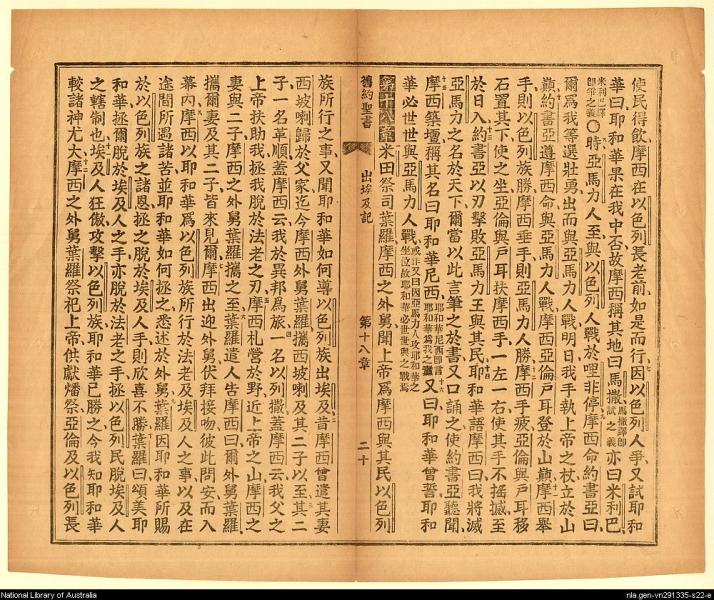 使民得飲摩西在以色列長老前如是而行因以色列人爭又試耶和
華曰耶和華果在我中否故摩西稱其地曰馬撒馬撒譯即試之義亦曰米利巴
米利巴譯即爭之義〇時亞馬力人至與以色列人戰於哩非停摩西命約書亞曰
爾爲我等選壯勇出而與亞馬力人戰明日我手執上帝之杖立於山
巔約書亞遵摩西命與亞馬力人戰摩西亞倫戶耳登於山巔摩西舉
手則以色列族勝摩西垂手則亞馬力人勝摩西手疲亞倫與戶耳移
石置其下使之坐亞倫與戶耳扶摩西手一左一右使其手不搖撼至
於日入約書亞以刃擊敗亞馬力王與其民耶和華語摩西曰我將滅
亞馬力之名於天下爾當以此言筆之於書又口誦之使約書亞聽聞
摩西築壇稱其名曰耶和華尼西耶和華尼西即言耶和華爲我之纛又曰耶和華曾誓耶和
華必世世與亞馬力人戰或作又曰因亞馬力人攻耶和華之坐位故耶和華必世世與之戰焉
第十八章米田祭司葉羅摩西之外舅聞上帝爲摩西與其民以色列
舊約聖書 出埃及記 第十八章 二十
族所行之事又聞耶和華如何導以色列族出埃及昔摩西曾遣其妻
西坡喇歸於父家迄今摩西外舅葉羅攜西坡喇及其二子以至其二
子一名革順蓋摩西云我於異邦爲旅一名以列撒蓋摩西云我父之
上帝扶助我拯我脫於法老之刃摩西札營於野近上帝之山摩西之
妻與二子摩西之外舅葉羅攜之至葉羅遣人告摩西曰爾外舅葉羅
攜爾妻及其二子皆來見爾摩西出迎外舅伏拜接吻彼此問安而入
幕內摩西以耶和華爲以色列族所行於法老及埃及人之事以及在
途間所遇諸苦並耶和華如何拯之悉述於外舅葉羅因耶和華所賜
於以色列族之諸恩拯之脫於埃及人手則欣喜不勝葉羅曰頌美耶
和華拯爾脫於埃及人之手亦脫於法老之手拯以色列民脫埃及人
之轄制也埃及人狂傲攻擊以色列族耶和華已勝之今我知耶和華
較諸神尤大摩西之外舅葉羅祭祀上帝供獻燔祭亞倫及以色列長
National Library of Australia
nla.gen-vn291335-s22-e